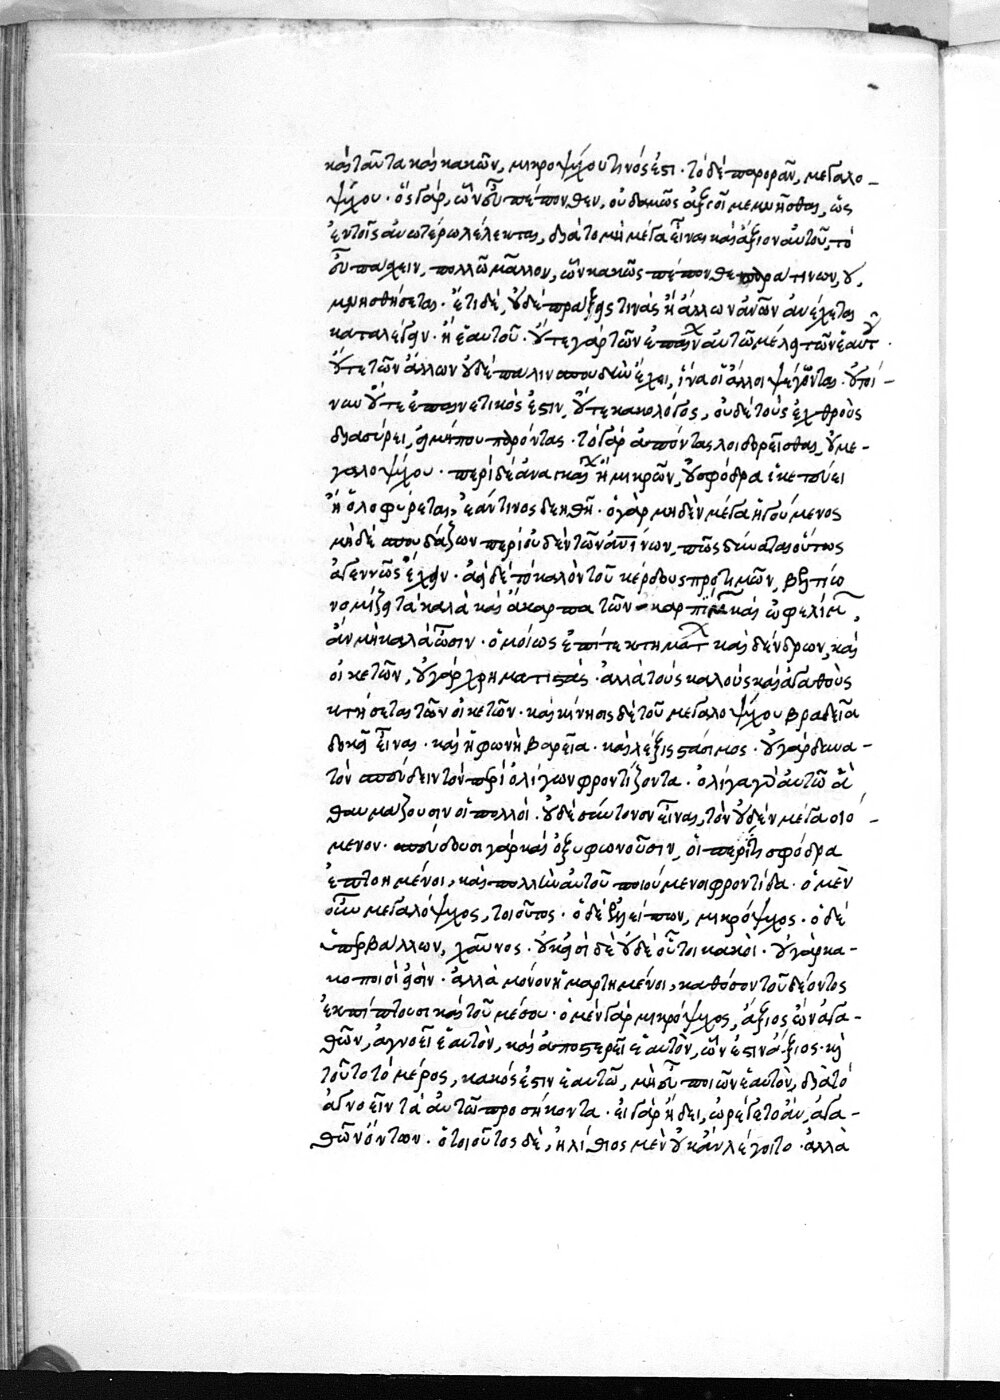 καὶ ταῦτα καὶ κακῶν, μικροψύχου τινός ἐστι · τὸ δὲ παρορᾶν, μεγαλο-
ψύχου · ὃς γὰρ, ὧν εὖ πέπονθεν, οὐδαμῶς ἀξιοῖ μεμνῆσθαι, ὡς
ἐν τοῖς ἀνωτέρω λέλεκται, διὰ τὸ μὴ μέγα εἶναι καὶ ἄξιον αὐτοῦ, τὸ
εὖ παθεῖν, πολλῶ μᾶλλον, ὧν κακῶς πέπονθε παρά τινων, οὐ
μνησθήσεται · ἔτι δὲ, οὐδὲ πράξεις τινὰς ἢ ἄλλων ἀνων ἀνέχεται
καταλέγειν · ἢ ἑαυτοῦ · οὔτε γὰρ τῶν ἐπαίνων αὐτῶ μέλει τῶν ἑαυτοῦ ·
οὔτε τῶν ἄλλων οὐδὲ πάλιν σπουδὴν ἔχει, ἵνα οἱ ἄλλοι ψέγωνται · οὐ τοί-
νυν οὔτε ἐπαινετικός ἐστιν, οὔτε κακολόγος, οὐδὲ τοὺς ἐχθροὺς
διασύρει, εἰ μή που παρόντας · τὸ γὰρ ἀπόντας λοιδορεῖσθαι, οὐ με-
γαλοψύχου · περὶ δὲ ἀναγκαίων ἢ μικρῶν, οὐ σφόδρα ἱκετεύει
ἢ ὀλοφύρεται, ἐάν τινος δεηθῆ · ὁ γὰρ μηδὲν μέγα ἡγούμενος
μηδὲ σπουδάζων περὶ οὐδὲν τῶν ἀνίνων, πῶς δύναται οὕτως
ἀγεννῶς ἔχειν · ἀεὶ δὲ τὸ καλὸν τοῦ κέρδους προτιμῶν, βελτίω
νομίζει τὰ καλὰ καὶ ἄκαρπα τῶν καρπίμων καὶ ὠφελίμων,
ἂν μὴ καλὰ ὦσιν · ὁμοίως ἐπί τε κτημάτων καὶ δένδρων, καὶ
οἰκετῶν, οὐ γὰρ χρηματιστὰς · ἀλλὰ τοὺς καλοὺς καὶ ἀγαθοὺς
κτήσεται τῶν οἰκετῶν · καὶ κίνησις δὲ τοῦ μεγαλοψύχου βραδεῖα
δοκεῖ εἶναι · καὶ ἡ φωνὴ βαρεῖα · καὶ λέξις στάσιμος · οὐ γὰρ δυνα-
τὸν σπεύδειν τὸν περὶ ὀλίγων φροντίζοντα · ὀλίγα γὰρ αὐτῶ ἃ
θαυμάζουσιν οἱ πολλοί · οὐδὲ σύντονον εἶναι, τὸν οὐδὲν μέγα οἰό-
μενον · σπεύδουσι γὰρ καὶ ὀξυφωνοῦσιν, οἱ περί τι σφόδρα
ἐπτοημένοι, καὶ πολλὴν αὐτοῦ ποιούμενοι φροντίδα · ὁ μὲν
οὖν μεγαλόψυχος, τοιοῦτος · ὁ δὲ ἐλλείπων, μικρόψυχος · ὁ δὲ
ὑπερβάλλων, χαῦνος · οὐκ εἰσὶ δὲ οὐδὲ οὗτοι κακοὶ · οὐ γὰρ κα-
κοποιοί εἰσιν · ἀλλὰ μόνον ἡμαρτημένοι, καθόσον τοῦ δέοντος
ἐκπίπτουσι καὶ τοῦ μέσου · ὁ μὲν γὰρ μικρόψυχος, ἄξιος ὢν ἀγα-
θῶν, ἀγνοεῖ ἑαυτὸν, καὶ ἀποστερεῖ ἑαυτὸν, ὧν ἐστιν ἄξιος · καὶ
τοῦτο τὸ μέρος, κακός ἐστιν ἑαυτῶ, μὴ εὖ ποιῶν ἑαυτὸν, διὰ τὸ
ἀγνοεῖν τὰ αὐτῶ προσήκοντα · εἰ γὰρ ᾔδει, ὠρέγετο ἂν, ἀγα-
θῶν ὄντων · ὁ τοιοῦτος δὲ, ἠλίθιος μὲν οὐκ ἂν λέγοιτο · ἀλλὰ